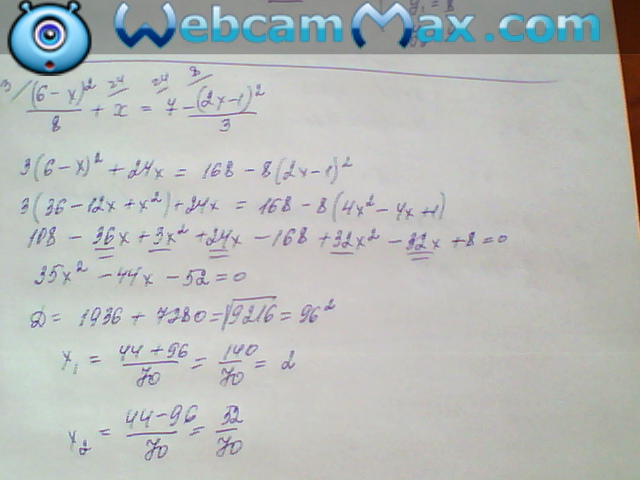 WebcamMax.com
3/ (6-x)²/8 + 24/ x = 24/ 7 - 8/ (2x-1)²/3
3(6-x)² + 24x = 168 - 8(2x-1)²
3(36-12x+x²)+24x = 168-8(4x²-4x+1)
108 - 36x + 3x² + 24x - 168 + 32x² - 32x + 8 = 0
35x² - 44x - 52 = 0
D = 1936 + 7280 = √9216 = 96²
x₁ = 44+96/70 = 140/70 = 2
x₂ = 44-96/70 = 52/70